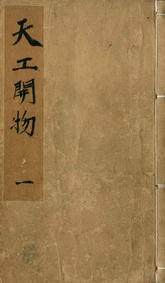 天工開物
一